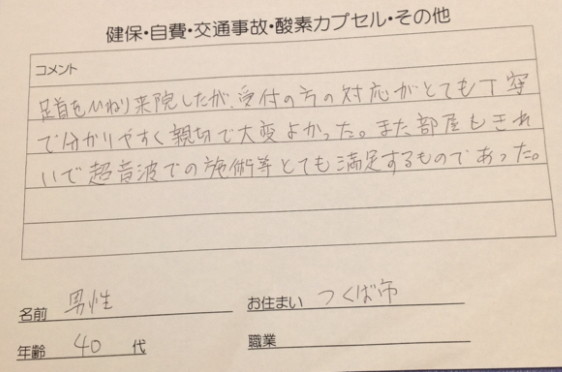 健保・自費・交通事故・酸素カプセル・その他
コメント
足首をひねり来院したが、受付の方の対応がとても丁寧
で分かりやすく親切で大変よかった。また部屋もきれ
いで超音波での施術等とても満足するものであった。
名前 男性 お住まい つくば市
年齢 40 代 職業